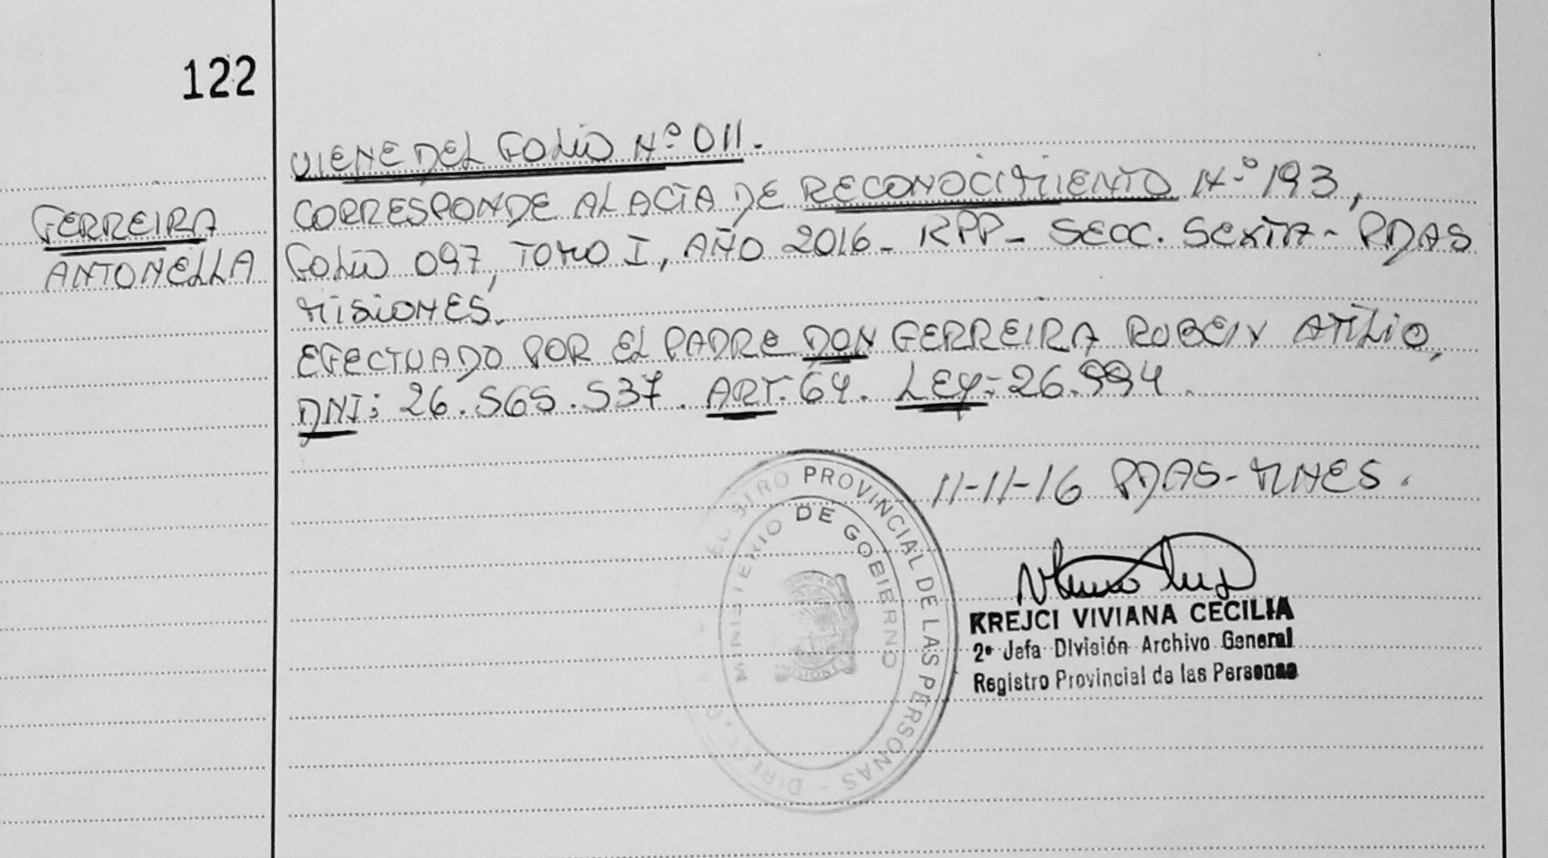 122
VIENE DEL FOLIO Nº 011.
FERREIRA
ANTONELLA
CORRESPONDE AL ACTA DE RECONOCIMIENTO Nº 193,
FOLIO 097, TOMO I, AÑO 2016- RPP- SECC. SEXTA- PDAS
MISIONES.
EFECTUADO POR EL PADRE DON FERREIRA RUBEN ATILIO,
DNI: 26.565.537. ART. 64. LEY: 26.994.
11-11-16 PDAS-MNES.
REGISTRO PROVINCIAL DE LAS PERSONAS -
MINISTERIO DE GOBIERNO
KREJCI VIVIANA CECILIA
2ª Jefa División Archivo General
Registro Provincial de las Personas